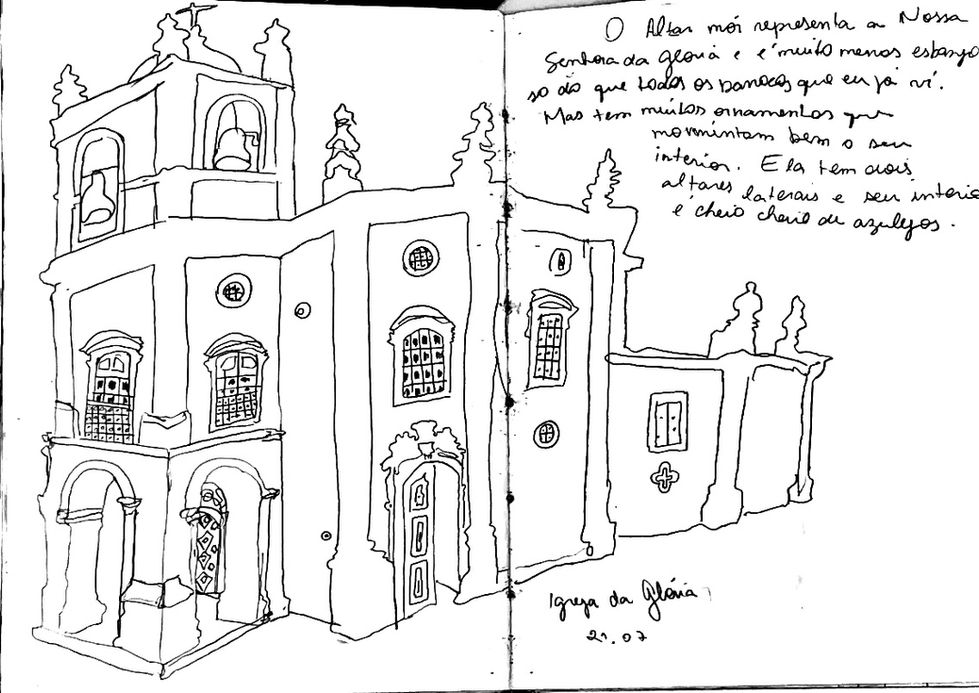 O Altar mór representa a Nossa
Senhora da Glória e é muito menos esbanja
so do que todos os barrocos que eu já vi.
Mas tem muitos ornamentos que
movimentam bem o seu
interior. Ela tem dois
altares laterais e seu interio
é cheio cheio de azulejos.
Igreja da Glória
21.07